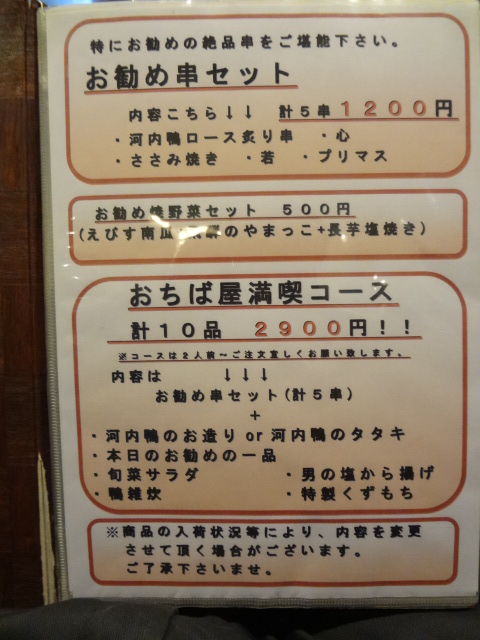 特にお勧めの絶品串をご堪能下さい。
お勧め串セット
内容こちら↓↓ 計5串1200円
・河内鴨ロース炙り串 ・心
・ささみ焼き ・若 ・プリマス
お勧め焼野菜セット 500円
(えびす南瓜 のやまっこ+長芋塩焼き)
おちば屋満喫コース
計10品 2900円!!
※コースは2人前~ご注文宜しくお願い致します。
内容は ↓↓↓
お勧め串セット(計5串)
+
・河内鴨のお造り or 河内鴨のタタキ
・本日のお勧めの一品
・旬菜サラダ ・男の塩から揚げ
・鴨雑炊 ・特製くずもち
※商品の入荷状況等により、内容を変更
させて頂く場合がございます。
ご了承下さいませ。